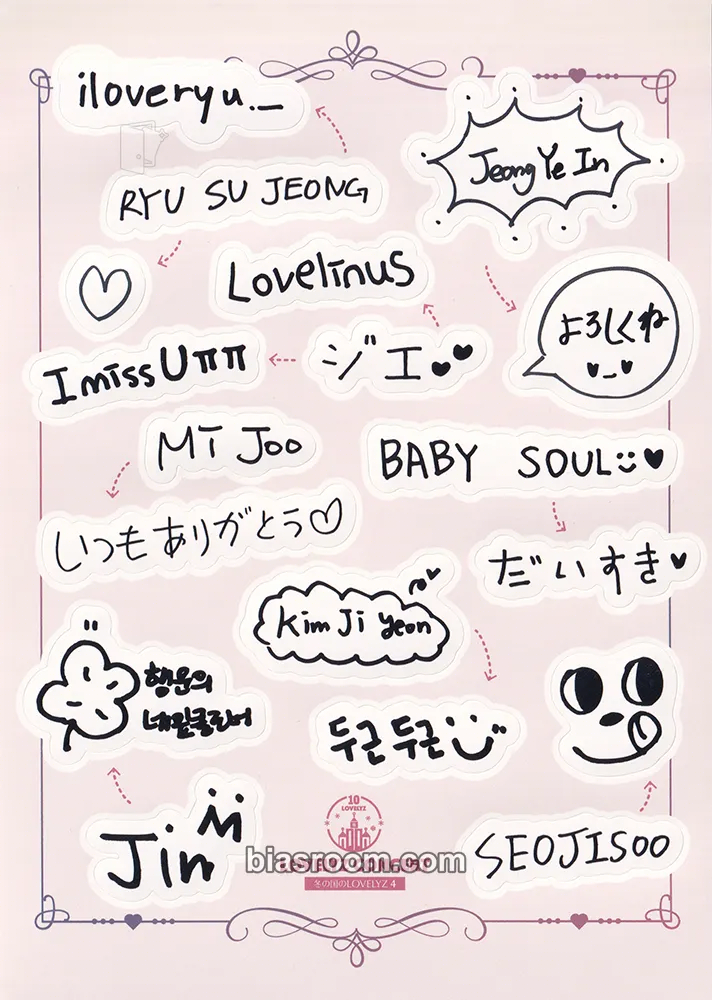 iloveryu._
Jeong Ye In
RYU SU JEONG
Lovelinus
よろしくね
I miss U ππ
ジエ
MI JOO
BABY SOUL
いつもありがとう♡
だいすき
Kim Ji Yeon
행운의
네잎클로버
두근두근
Jin
SEOJISOO
10
LOVELYZ
biasroom.com
冬の国のLOVELYZ 4